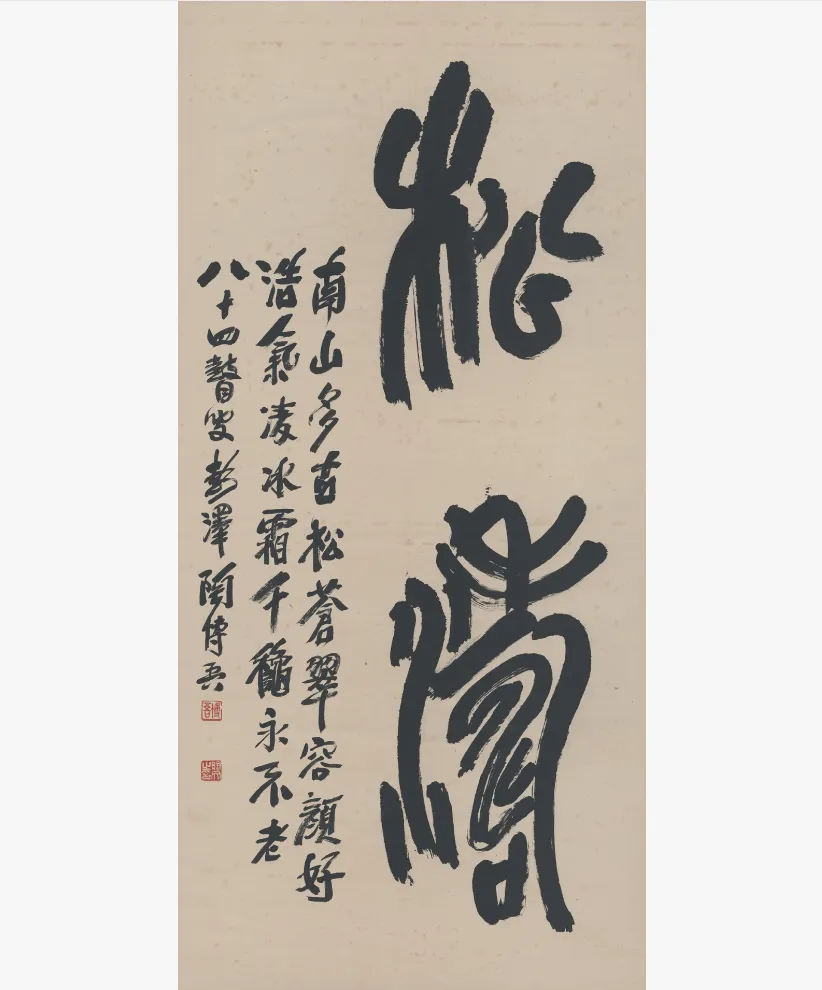 松濤
南山多古松蒼翠容顏好
浩氣凌冰霜千龝永不老
八十四瞽叟彭澤陶博吾